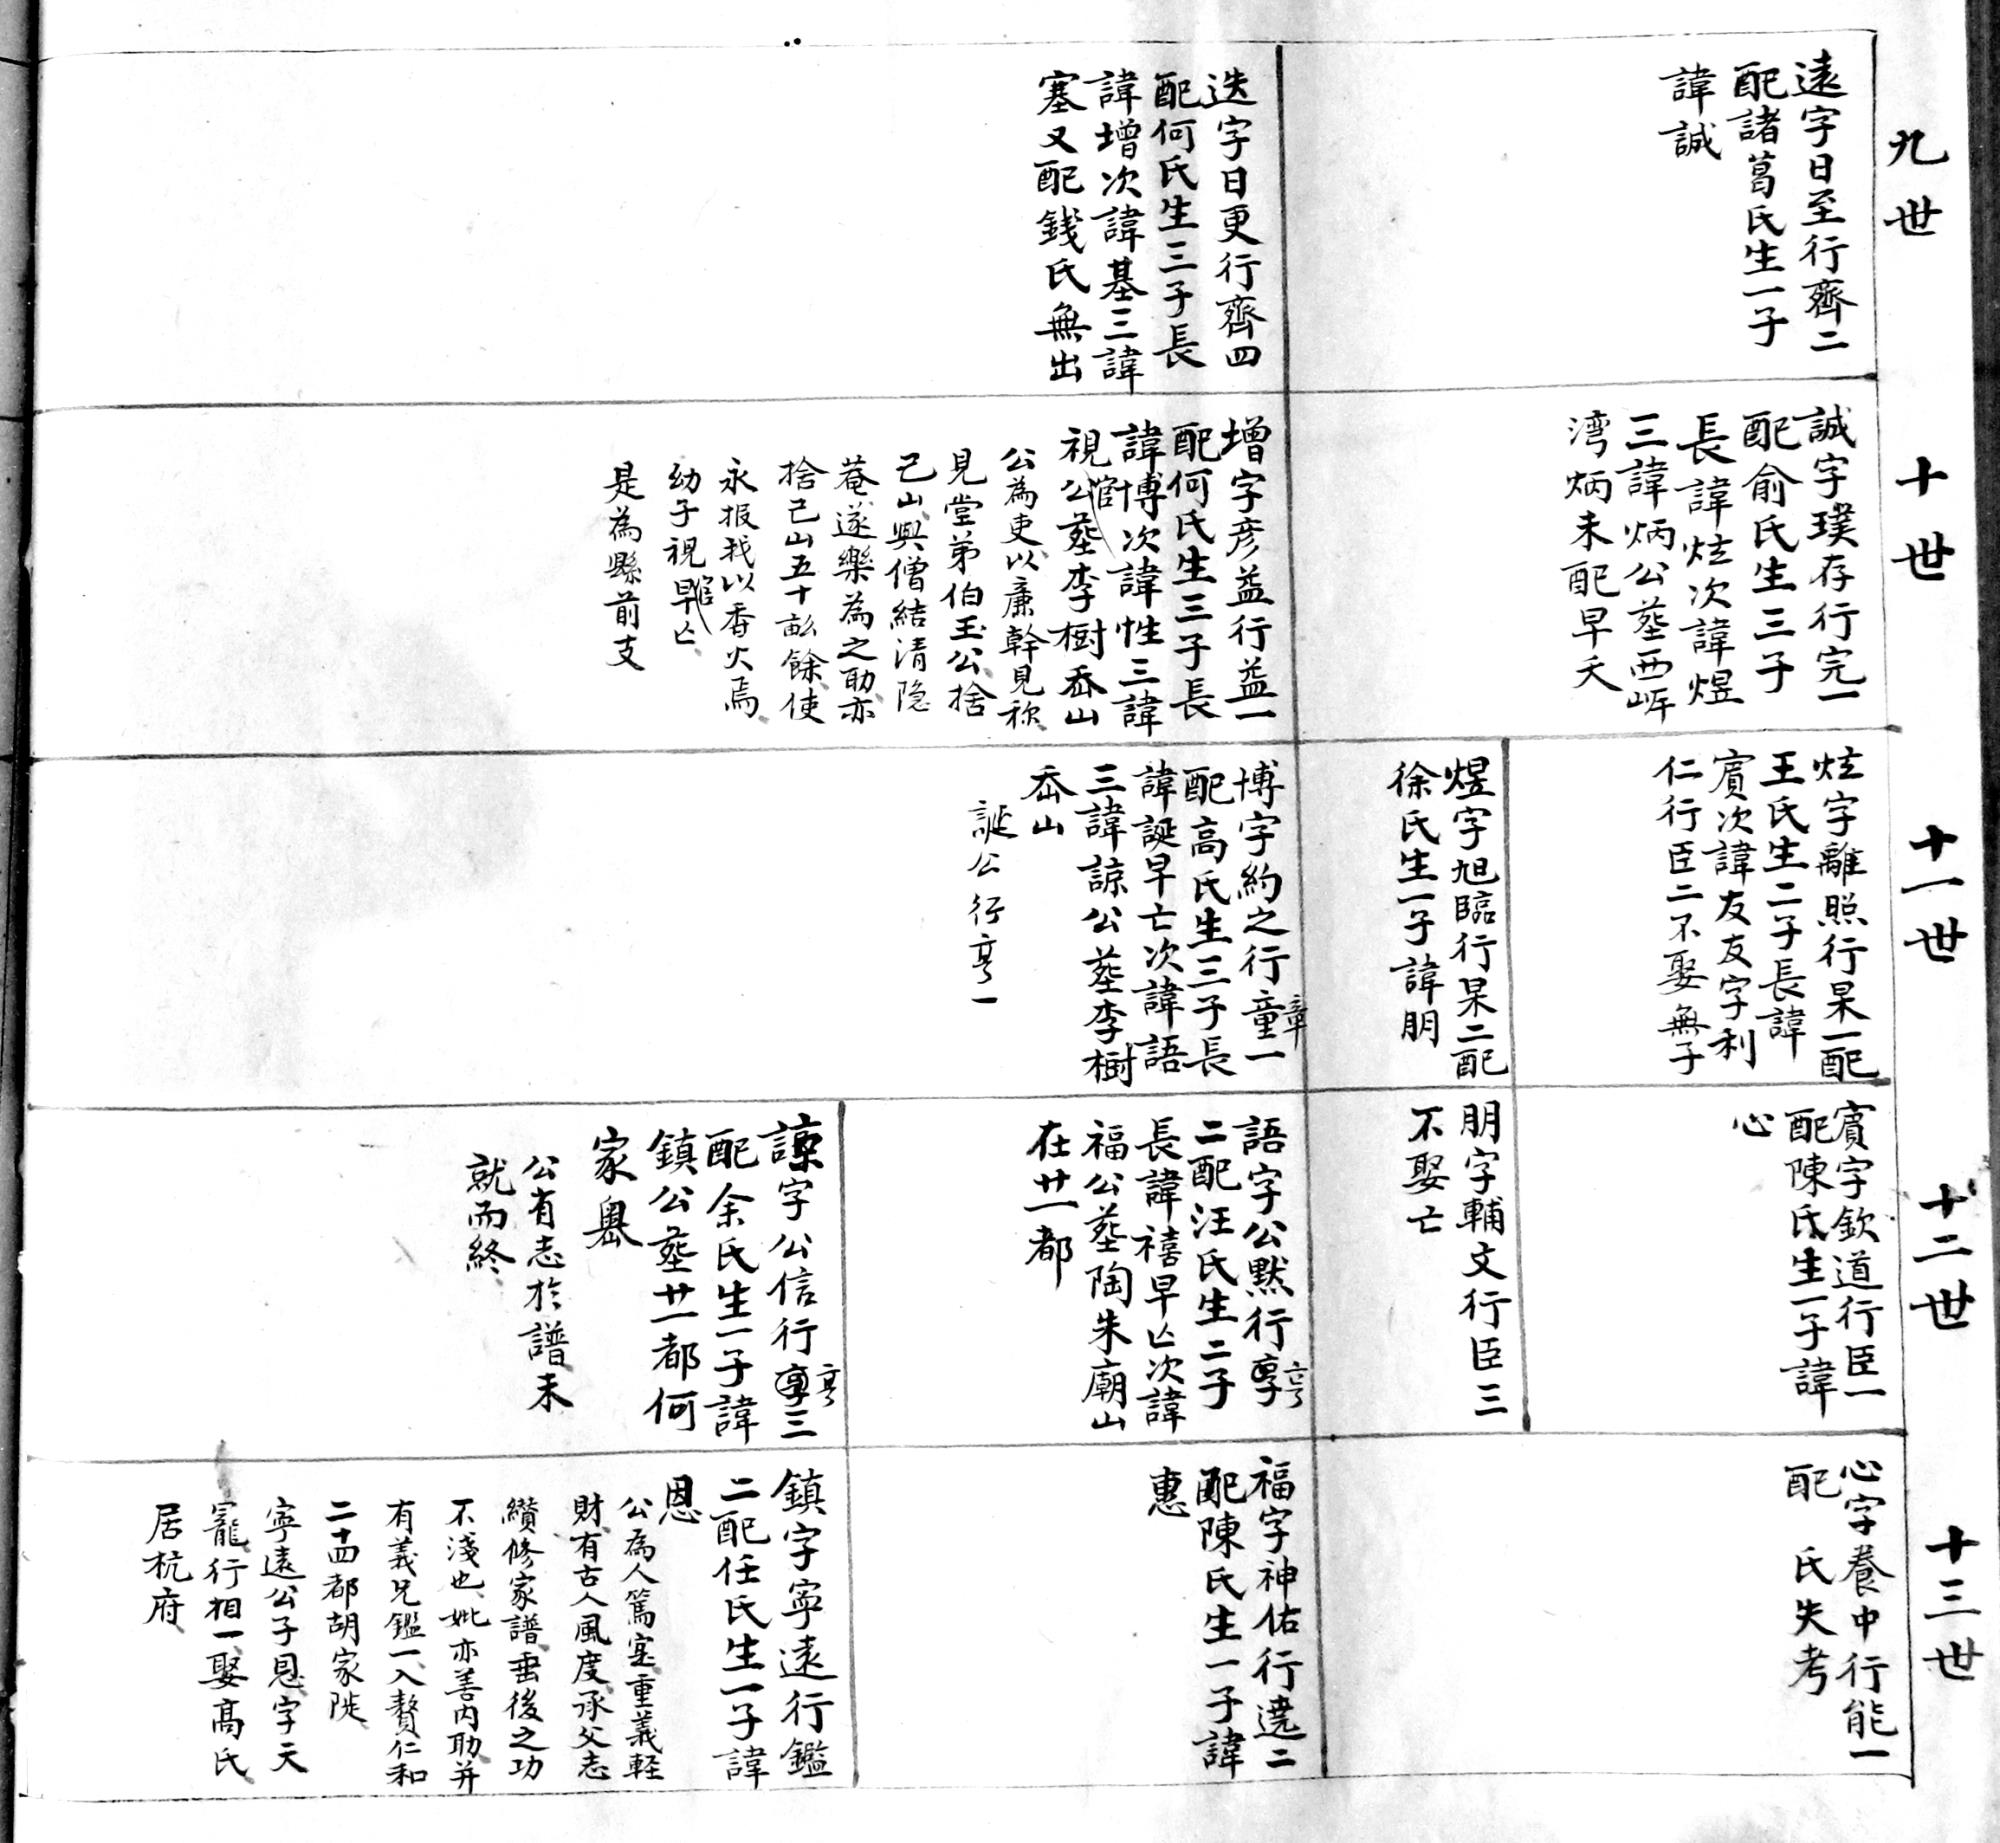 九世
遠字日至行齊二
配諸葛氏生一子
諱誠
迭字日更行齊四
配何氏生三子長
諱增次諱基三諱
塞又配錢氏無出
十世
誠字璞存行完一
配俞氏生三子
長諱炫次諱煜
三諱炳公塟西㟁
湾炳未配早夭
增字彦益行益一
配何氏生三子長
諱博次諱性三諱
視公塟李樹岙山
公為吏以廉幹見称
見堂弟伯玉公捨
己山與僧結清隐
菴遂樂為之助亦
捨己山五十畝餘使
永报我以香火焉
幼子視早亾
是為縣前支
十一世
炫字離照行杲一配
王氏生二子長諱
賔次諱友友字利
仁行臣二不娶無子
煜字旭臨行杲二配
徐氏生一子諱朋
博字約之行童一
章
配高氏生三子長
諱誕早亡次諱語
三諱諒公塟李樹
岙山
誕公行亨一
十二世
賔字欽道行臣一
配陳氏生一子諱
心
朋字輔文行臣三
不娶亡
語字公默行享
亨
二配汪氏生二子
長諱禧早亾次諱
福公塟陶朱廟山
在廿一都
諒字公信行享三
亨
配余氏生一子諱
鎮公塟廿一都何
家㠗
公有志於譜未
就而終
十三世
心字養中行能一
配 氏失考
福字神佑行遶二
配陳氏生一子諱
惠
鎮字寧遠行鑑
二配任氏生一子諱
恩
公為人篤寔重義輕
財有古人風度承父志
纘修家譜垂後之功
不淺也妣亦善内助并
有義兄鑑一入贅仁和
二十四都胡家陡
寧遠公子恩字天
寵行相一娶高氏
居杭府